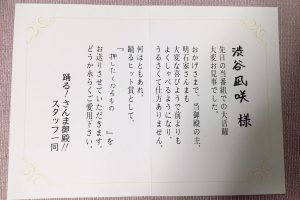 渋谷凪咲 様
先日の当番組での大活躍
大変お見事でした。
おかげさまで、当御殿の主、
明石家さんまも
大変な喜びようで前よりも
よくしゃべるようになり、
うるさくて仕方ありません。
何はともあれ、
踊るヒット賞として、
『押したくなるもの』を
お送りさせていただきます。
どうか末らくご愛用下さい。
踊る!さんま御殿!!
スタッフ一同